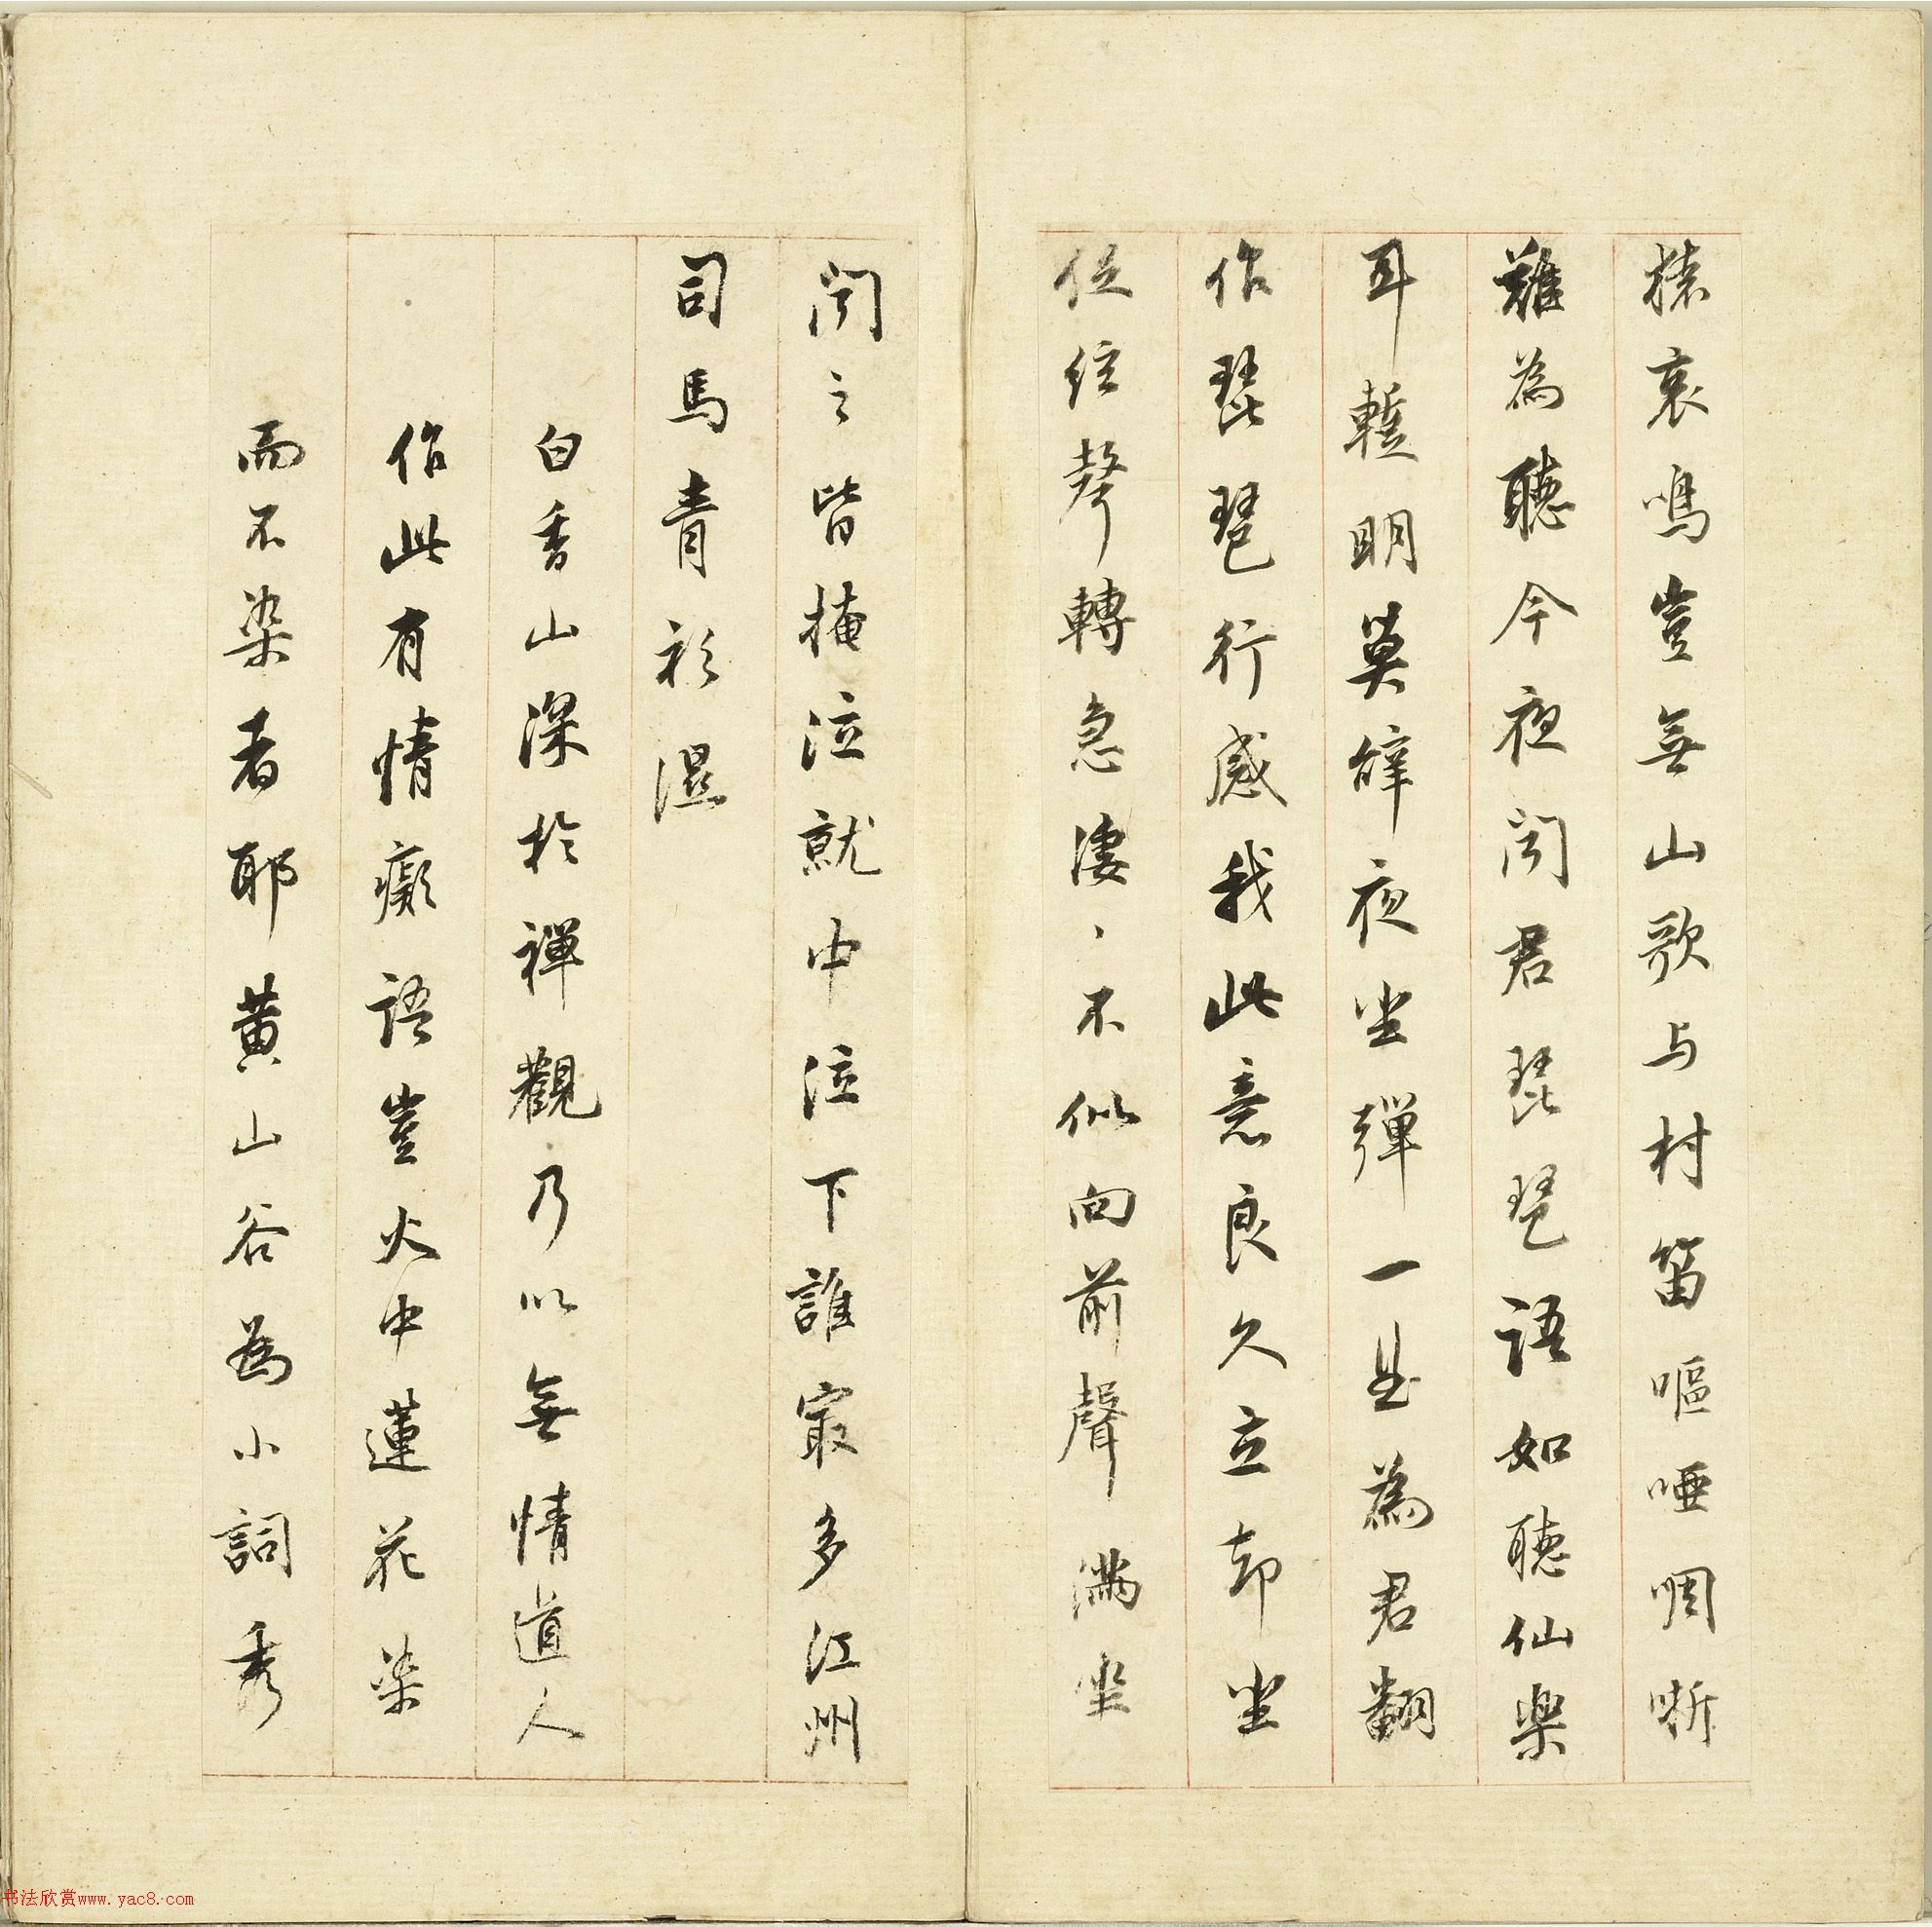 猿哀鳴豈無山歌与村笛嘔啞啁哳
難為聽今夜聞君琵琶語如聽仙樂
耳蹔明莫辭夜坐彈一曲為君翻
作琵琶行感我此意良久立却坐
促絃聲轉急凄〻不似向前聲滿坐
聞之皆掩泣就中泣下誰㝡多江州
司馬青衫濕
白香山深於禪觀乃以無情道人
作此有情癡語豈火中蓮花染
而不染者耶黄山谷為小詞秀
书法欣赏www.yac8.com